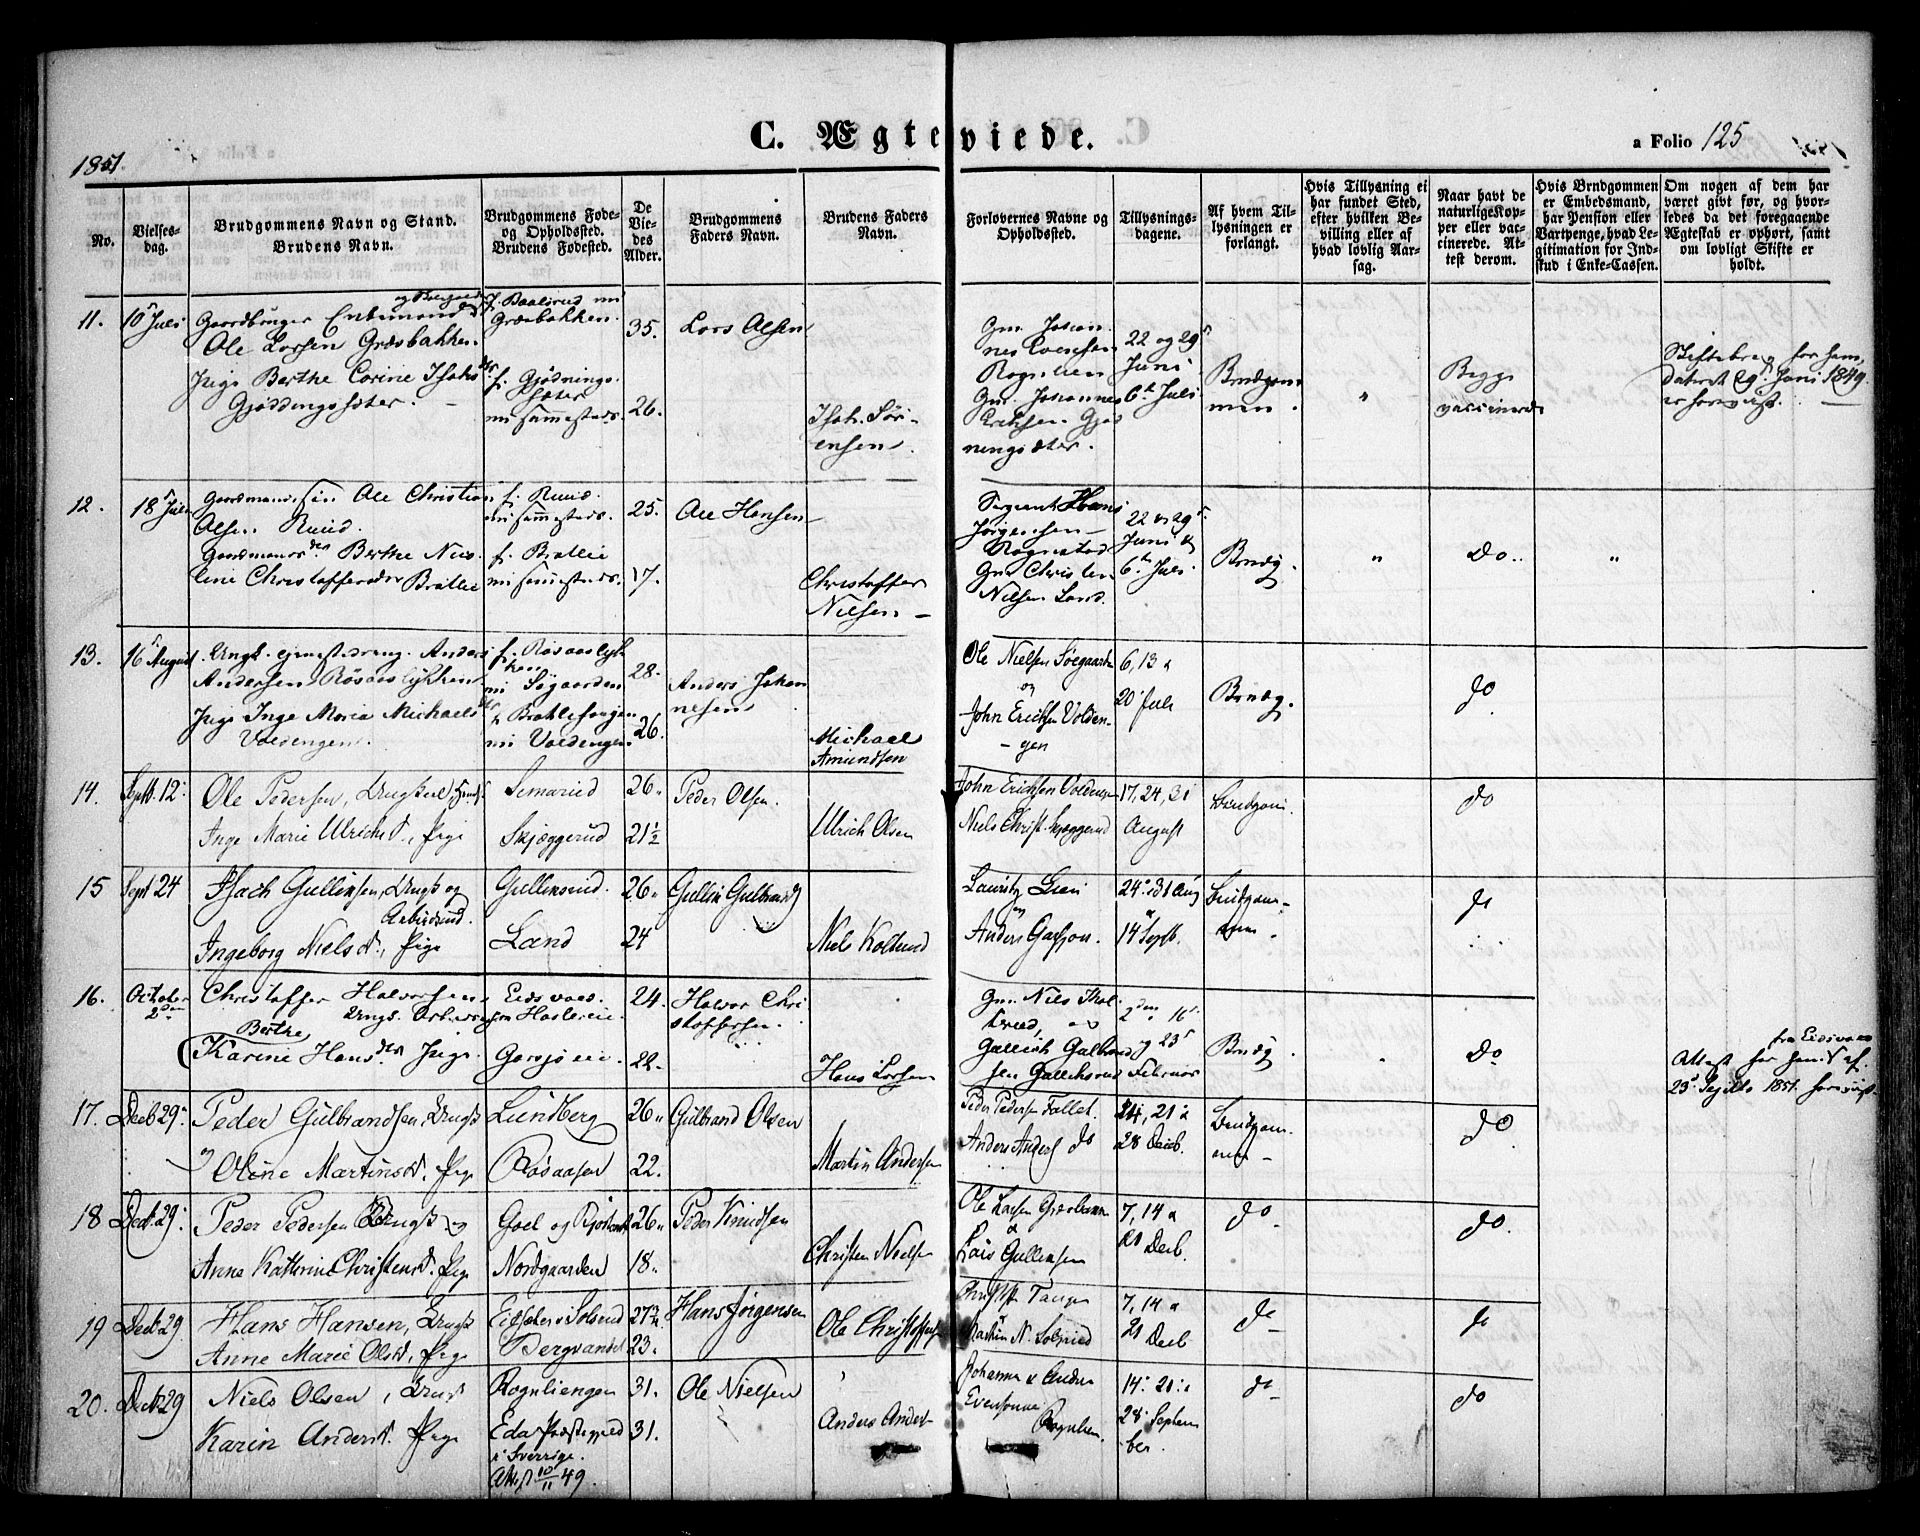 1851.
C. Ægteviede.
a Folio 125
No.
Vielses-
dag.
Brudgommens Navn og Stand.
Brudens Navn.
Brudgommens Føde-
og Opholdssted.
Brudens Fødested.
De
Vie-
des
Alder.
Brudgommens
Faders Navn.
Brudens Faders
Navn.
Forlovernes Navne og
Opholdssted.
Tillysnings-
dagene.
Af hvem Til-
lysningen er
forlangt.
Hvis Tillysning ei
har fundet Sted,
efter hvilken Be-
villing eller af
hvad lovlig Aar-
sag.
Naar havt de
naturlige Kop-
per eller vac-
cinerede. At-
test derom.
Hvis Brudgommen
er Embedsmand,
har Pension eller
Vartpenge, hvad Le-
gitimation for Ind-
skud i Enke-Cassen.
Om nogen af dem har
været givt før, og hvor-
ledes da det foregaaende
Ægteskab er ophørt, samt
om lovligt Skifte er
holdt.
11.
10 Juli
Gaardbruger Enkemand
Ole Larsen Græsbakken
Pige Berthe Corine Isaks
Gjødningsæter.
Græsbakken.
f. Gjødning-
sæter
samesteds.
35.
26.
Lars Olsen
Isak Sør-
ensen
Gm. Johan-
nes
Gm. Johannes
Eriksen Gjød
ningsæter.
22 og 29
Juni
6te Juli
Brudgom
men.
"
Begge
vaccinerede
Skiftebrev for ham
dateret 29 Juni 1849
er foreviist.
12.
18 Juli
Gaardmands søn Ole Christian
Olsen Ruud.
Gaardmands Berthe Nico-
line Christoffersdtr Bratlie
f. Ruud.
samesteds.
f. Bratlie
samesteds.
25.
17.
Ole Hansen
Christoffer
Nielsen
Sergeant Hans
Jørgensen
Rognstad
Gm Christen
Nielsen Land.
22 og 29
Juni &
6te Juli.
Brudg.
"
Do.
"
13.
16 August
Ungk. Anders
Andersen Røsaaslykken
Pige Inge Maria Michaels
Voldengen.
f. Røsaaslyk-
ken
Søgaarden
Voldengen
28.
26.
Anders Johan
nesen
Michael
Amundsen
Ole Nielsen Søegaarden
og
John Ericksen Volden-
gen
6, 13 &
20 Juli
Brudg.
do
14.
Septb. 12
Ole Pedersen, Ungkarl,
Inge Marie Ulrichsd., Pige
Semerud
Skjæggerud
26
21½
Peder Olsen.
Ulrich Olsen
John Ericksen Voldengen
Niels Christ. Skjæggerud
17, 24, 31
August
Brudgom.
do
15
Sept 24
Isach Gullicksen, Ungk og
Arbeidsmd.
Ingeborg Nielsd., Pige
Land
26
24
Gullik Gulbrands
Niels
Lauritz Lier
og
Anders
24 & 31 Aug
14 Septb.
Brudgom-
men.
do
16.
October
2den
Christoffer Halvorsen
Berthe
Karine Hansdtr Pige.
Eidsvold.
Garsjøeie.
24.
22.
Halvor Chri
stoffersen.
Hans Larsen
Gm. Niels
Gullich Gulbrand
sen
2den, 16
og 23
Februar
Brudg.
Do
fra Eidsvold
Attest for ham af
23 Septb 1851 foreviist.
17.
Decb 29
Peder Gulbrandsen, Ungk
og Oline Martinsd. Pige
Lundberg
Røsaasen
26
22.
Gulbrand Olsen
Martin Andersen
Peder Pedersen Fallet.
Anders Anders. do
14, 21 &
28 Decb.
Brudgom-
men
do
18
Decb. 29
Peder Pedersen Ungk og
Anne Kathrine Christensd. Pige
Nordgaarden
26
18
Peder Knudsen
Christen Nielsen
Ole Larsen
&
Lars Gullicksen
7, 14 &
21 Decb.
do
do
19
Decb 29
Hans Hansen, Ungk
Anne Marie Olsd., Pige
Bergvandet
27¾
23.
Hans Jørgensen
Ole Christoffersen
Tangen
7, 14 &
21 Decb
do
do
20.
Decb. 29
Niels Olsen, Ungk
Karin Andersd. Pige
Rognliengen
Eda Præstegjeld
i Sverrige.
Attest 10/11 49.
31.
31.
Ole Nielsen
Anders Anders-
Johannes & Anders
Evensønner
Rognlien.
14. 21. &
28 Septem
ber
do
do